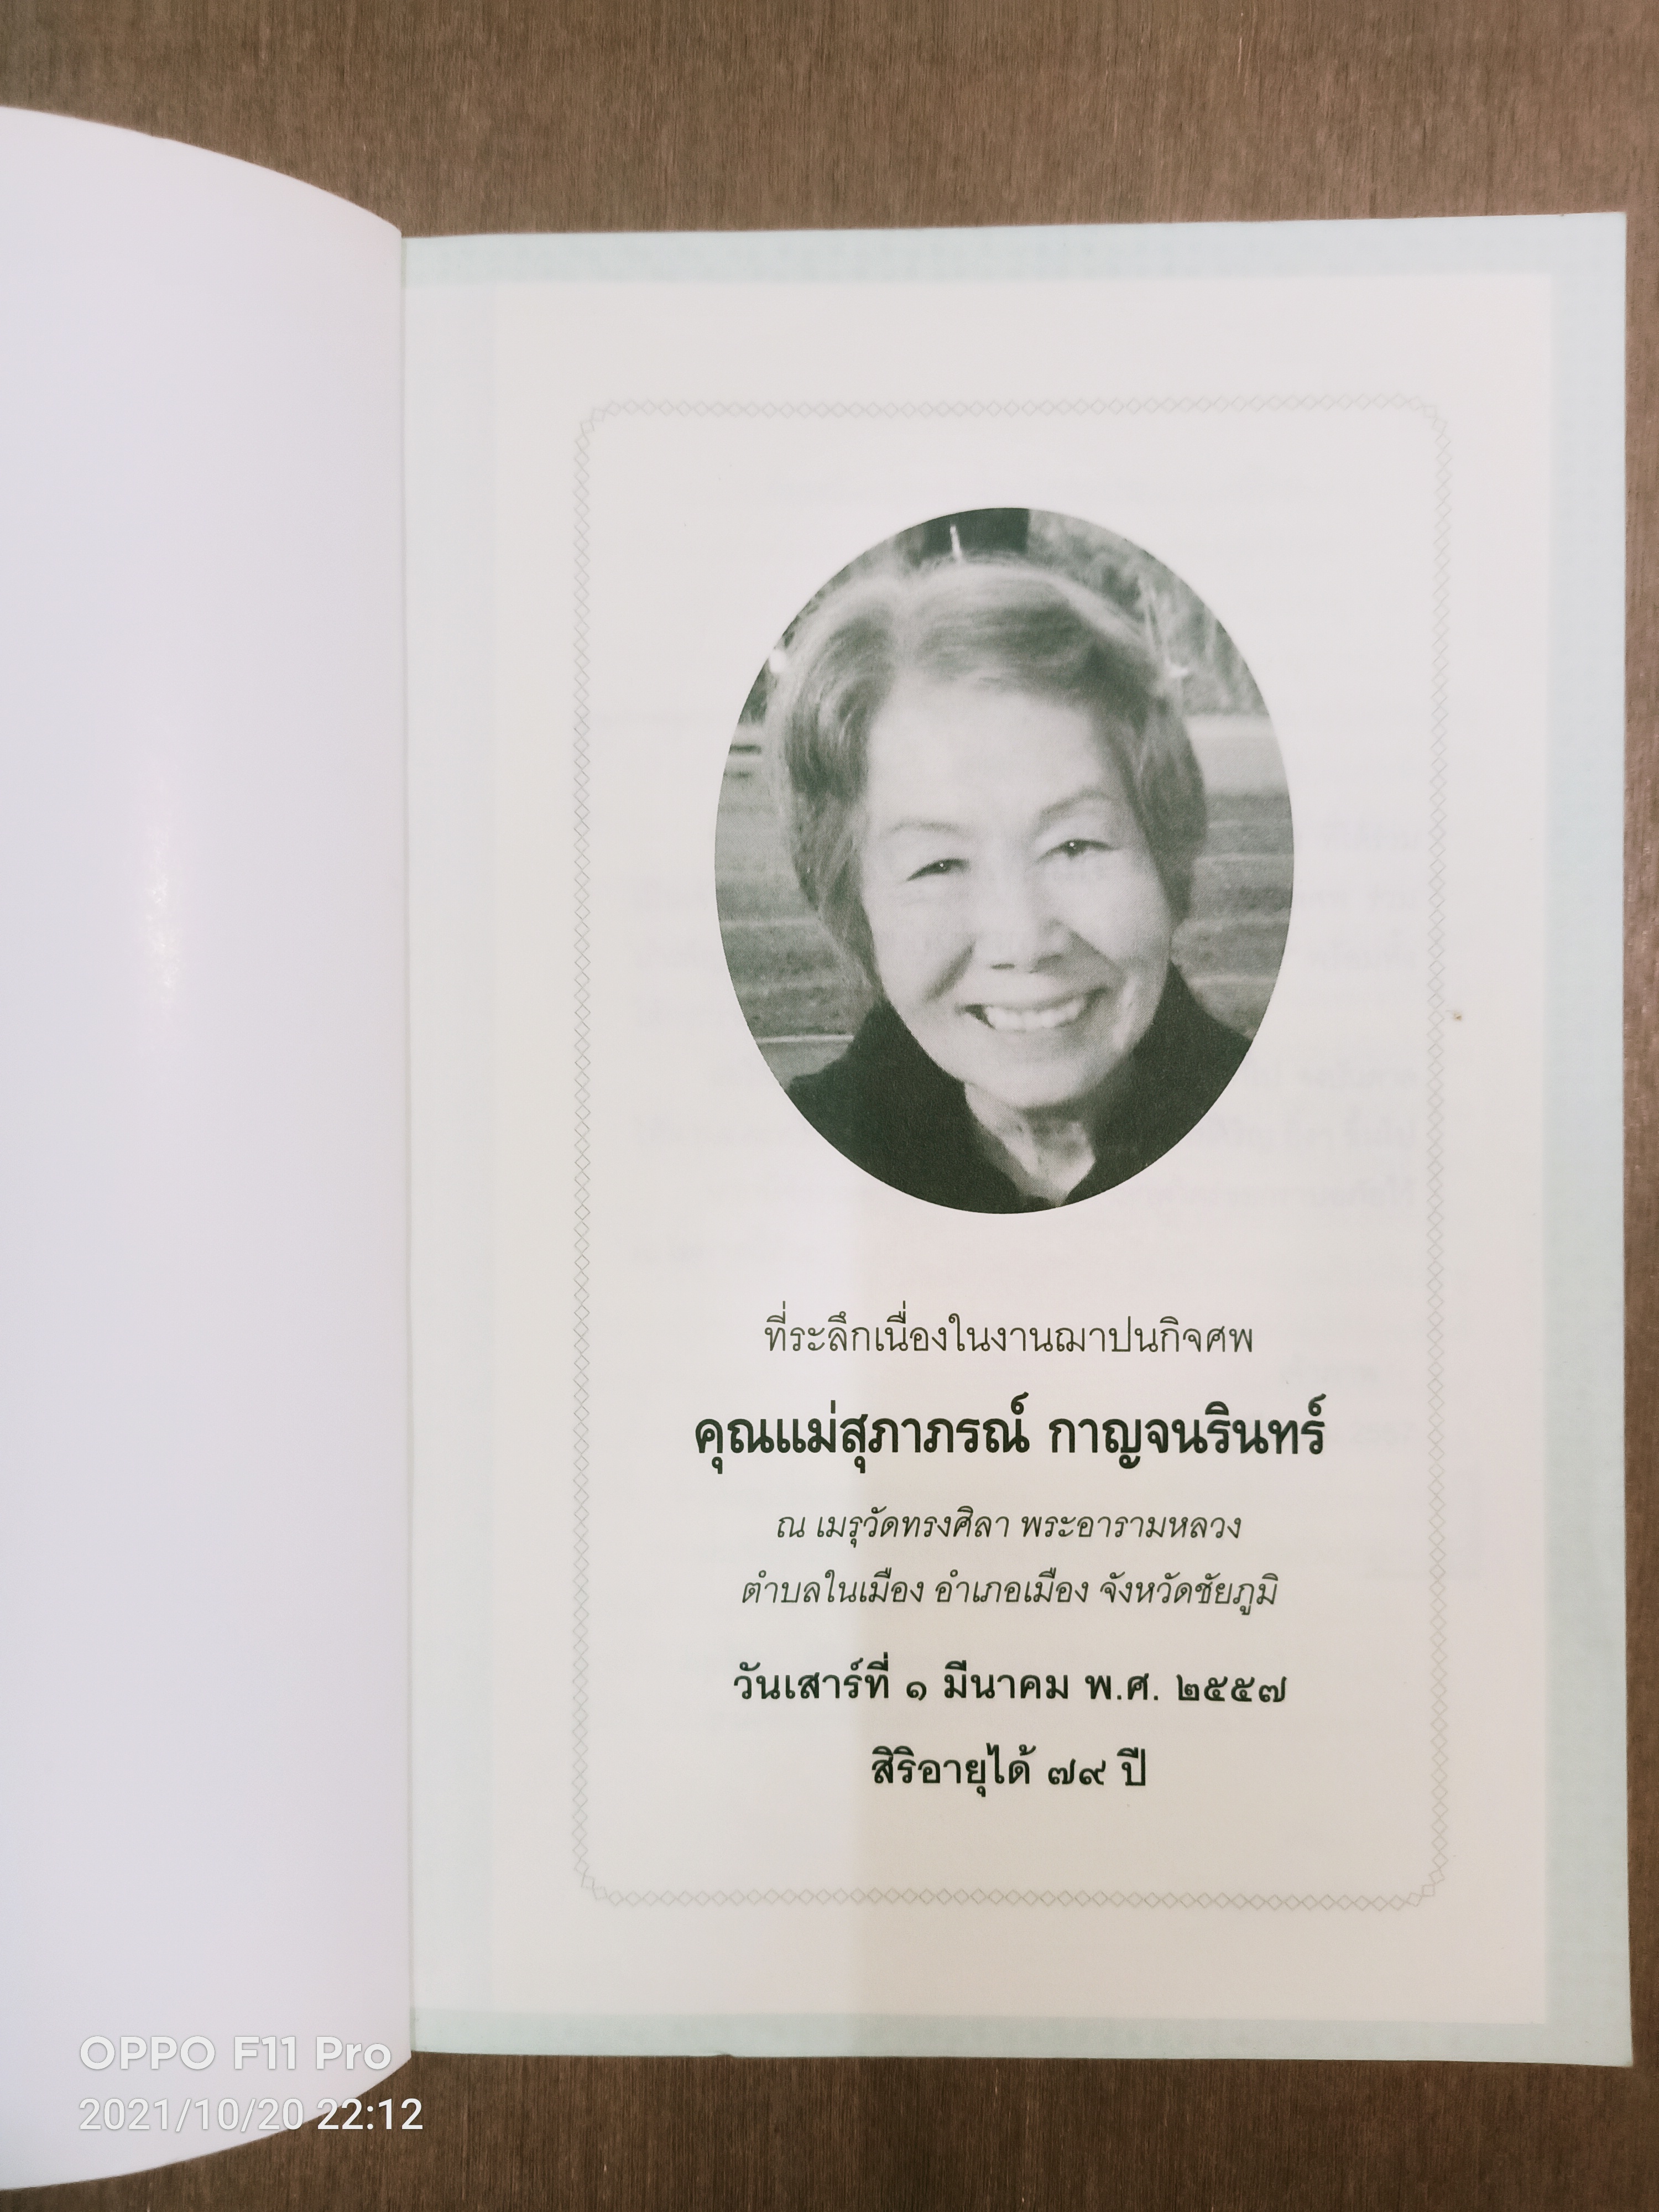 ที่ระลึกเนื่องในงานฌาปนกิจศพ
คุณแม่สุภาภรณ์ กาญจนรินทร์
ณ เมรุวัดทรงศิลา พระอารามหลวง
ตำบลในเมือง อำเภอเมือง จังหวัดชัยภูมิ
วันเสาร์ที่ ๑ มีนาคม พ.ศ. ๒๕๕๗
สิริอายุได้ ๗๙ ปี
OPPO F11 Pro
2021/10/20 22:12